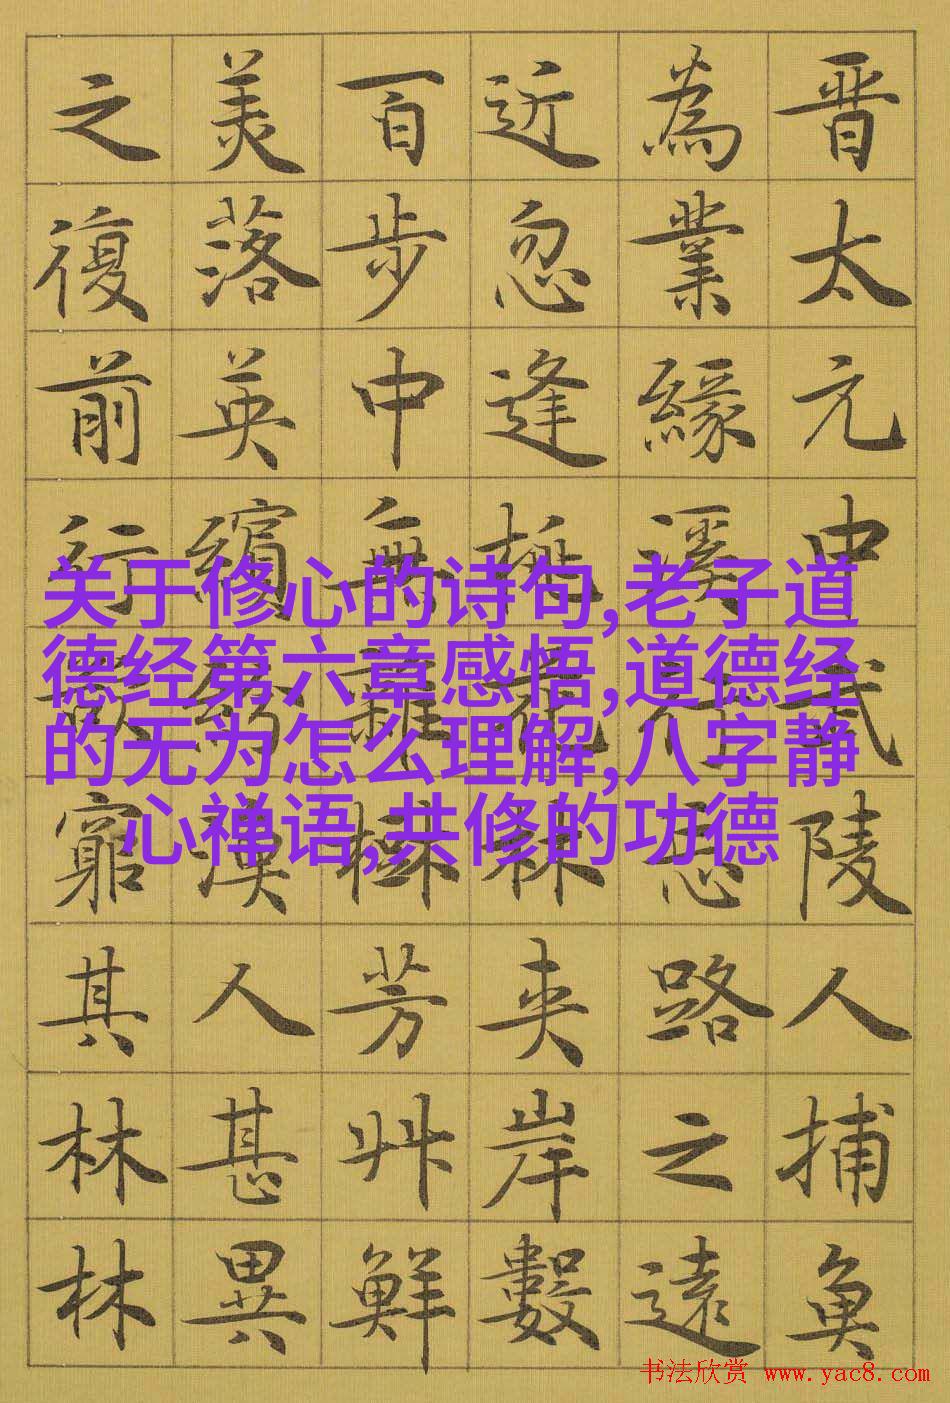 晋太元中武陵人捕魚
為業緣溪行忘路之遠
近忽逢桃花林夾岸數
百步中無雜樹芳艸鮮
美落英繽紛漁人甚異
之復前行欲窮其林林
关于修心的诗句,老子道
德经第六章感悟,道德经
的无为怎么理解,八字静
心禅语,共修的功德
书法欣赏 www.yac8.com